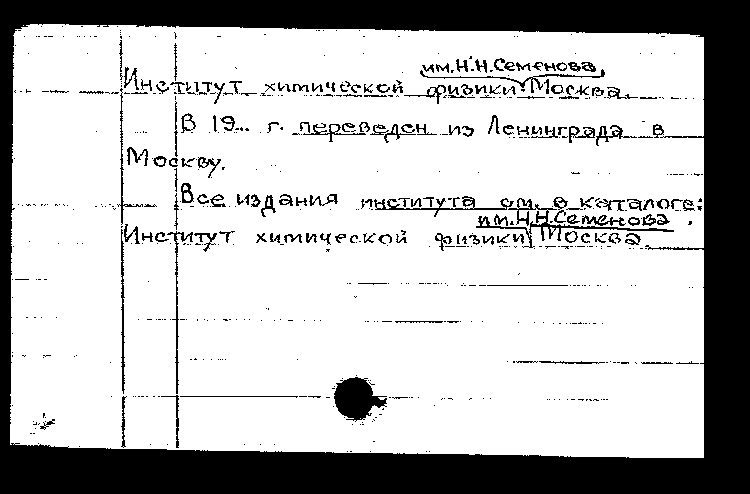 им. Н.Н. Семенова,
Институт химической физики. Москва.
В 19... г. переведен из Ленинграда в
Москву.
Все издания института см. в каталоге:
им. Н.Н. Семенова.
Институт химической физики, Москва.